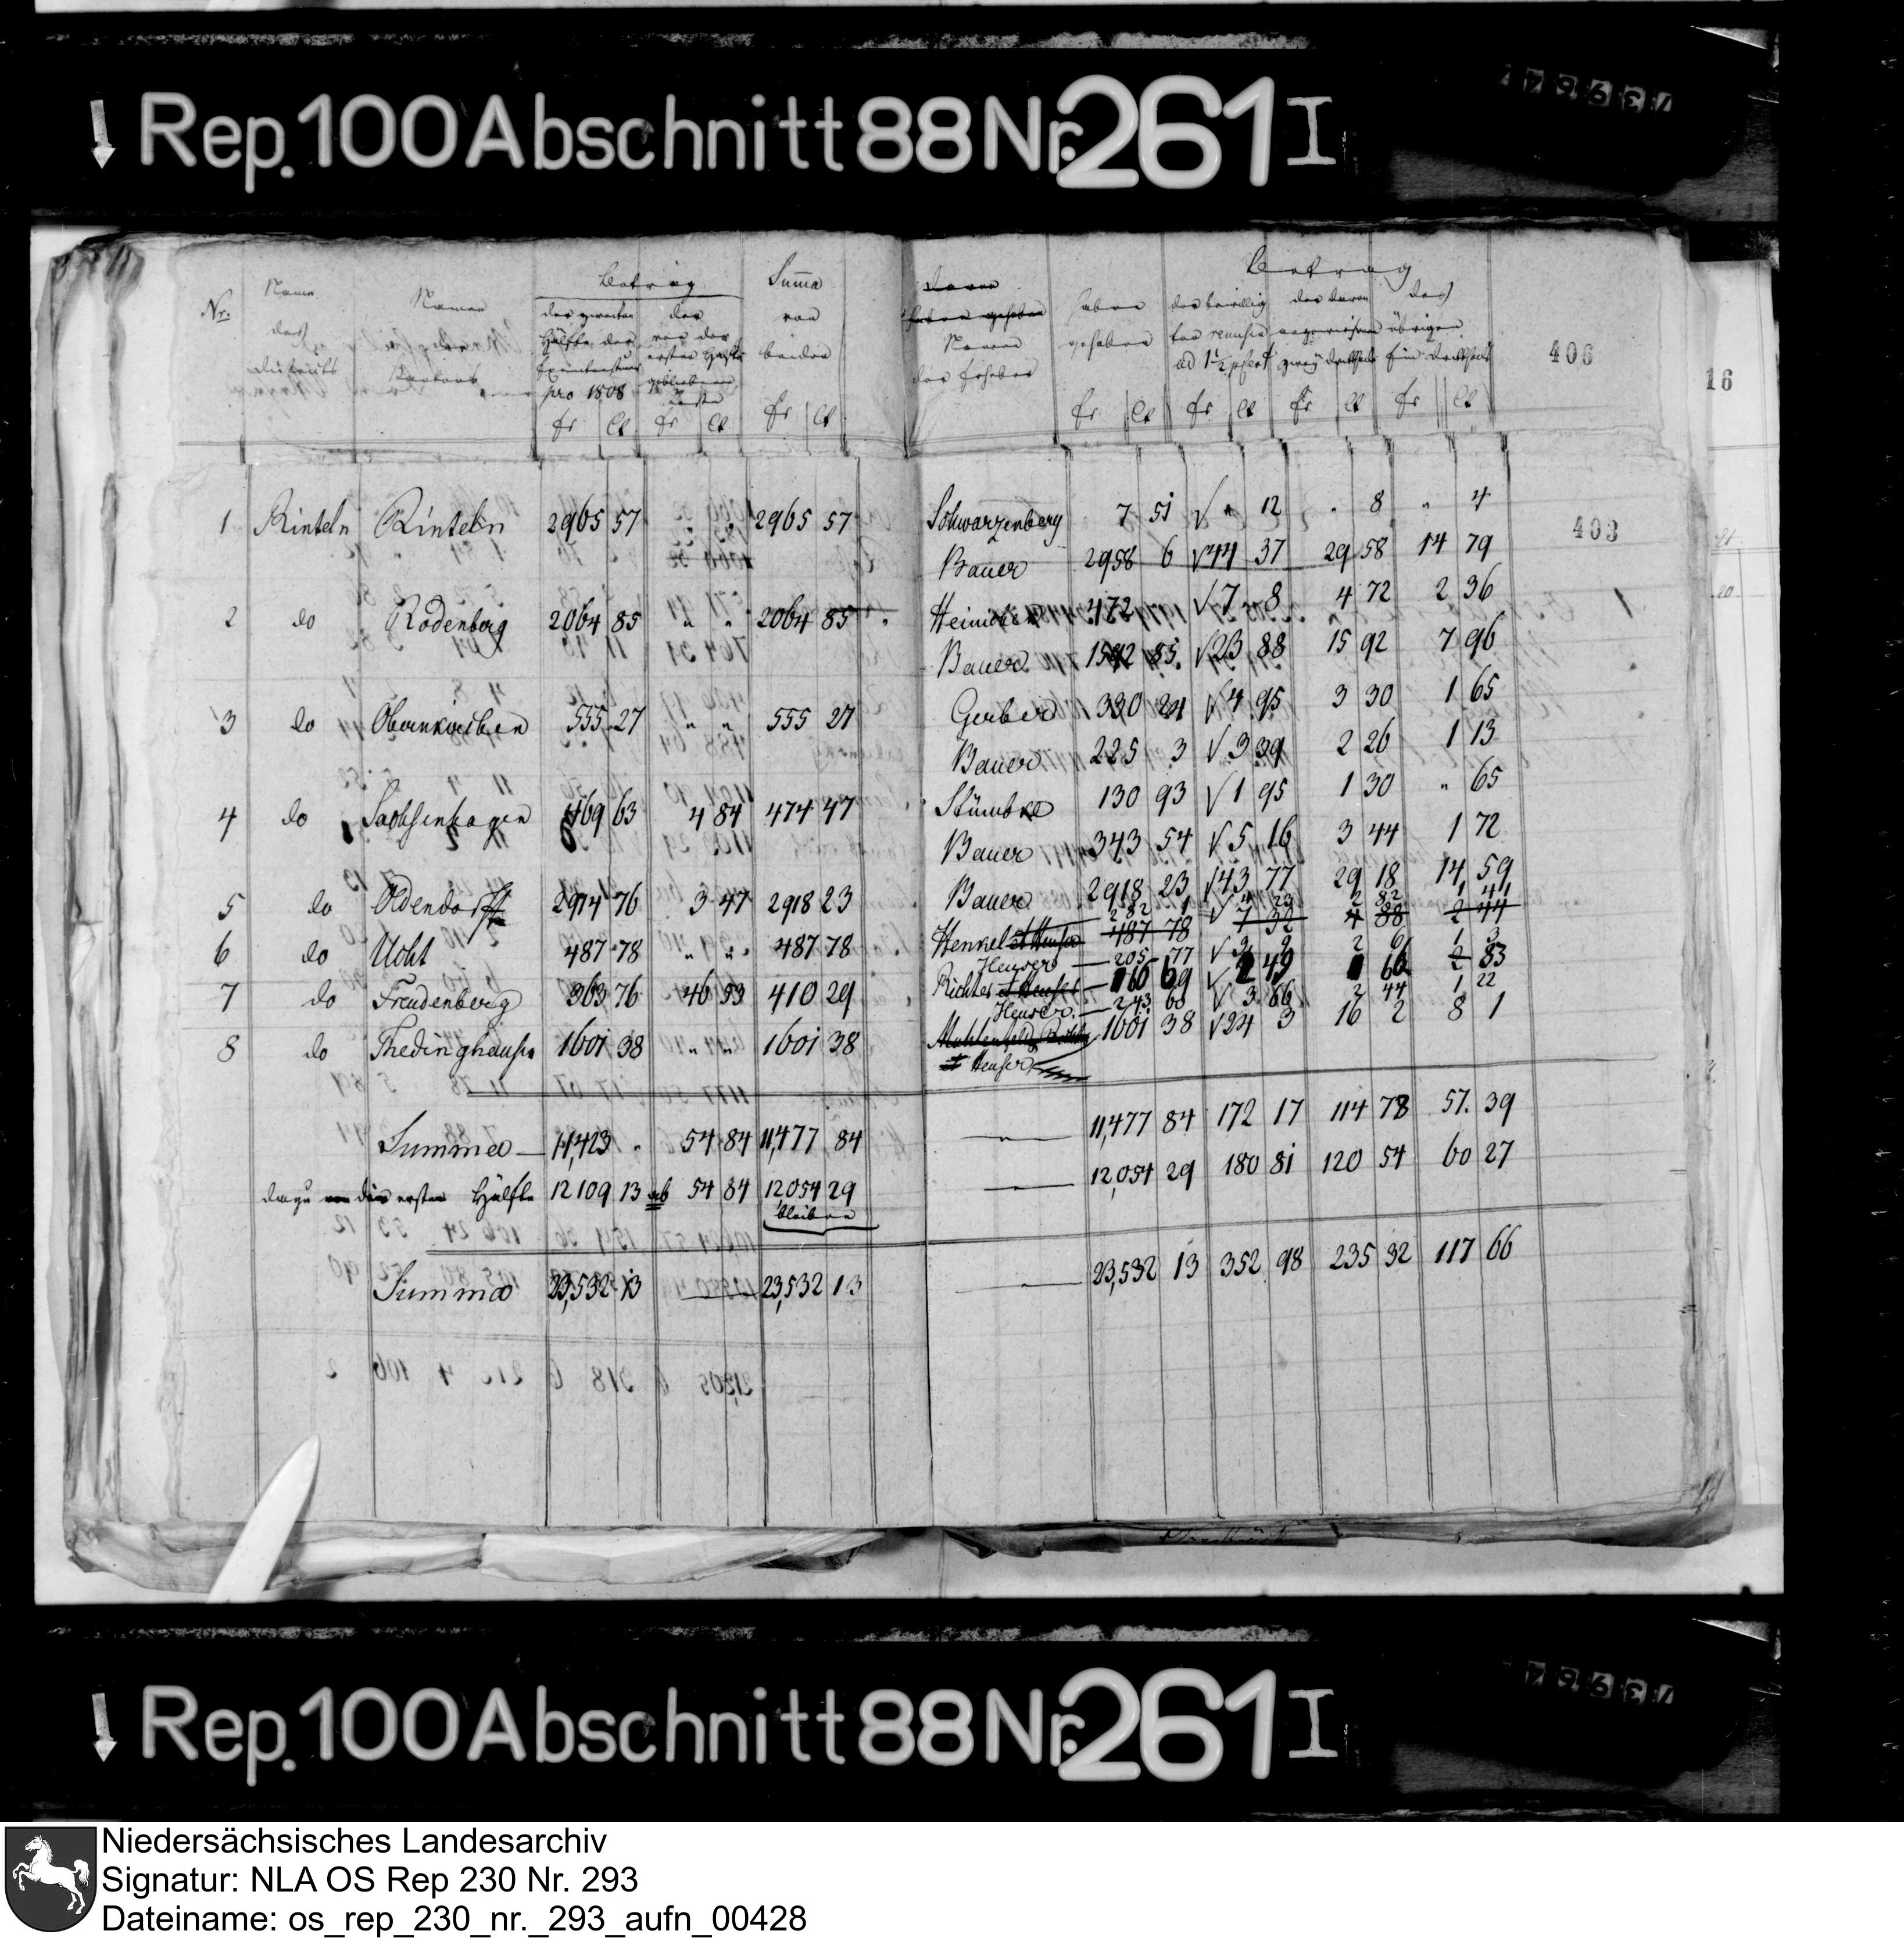 ↓ Rep. 100 Abschnitt 88 Nr. 261 I
Nr. Name des Districts Namen des Kantons Betrag Summa von beiden
der zweiten Hälfte der Exemtensteuer pro 1808 der von der ersten Hälfte gebliebenen Reste
fr Ct fr Ct fr Ct
1 Rinteln Rinteln 2965 57 " " 2965 57
2 do Rodenberg 2064 85 " " 2064 85
3 do Obernkirchen 555 27 " " 555 27
4 do Sachsenhagen 469 63 4 84 474 47
5 do Oldendorff 2914 76 3 47 2918 23
6 do Ucht 487 78 " " 487 78
7 do Freudenberg 363 76 46 53 410 29
8 do Thedinghausen 1601 38 " " 1601 38
Summa 11,423 " 54 84 11,477 84
dazu die ersten Hälfte 12109 13 ab 54 84 12,054 29
bleiben
Summa 23,532 13 — 23,532 13
Davon haben gehoben
Namen der Erheber haben gehoben Betrag
der bewilligten remise ad 1 1/2 pCent der davon angewiesenen zwey Dritttheile des übrigen Ein Dritttheils
fr Ct fr Ct fr Ct fr Ct
406
16
403
Schwarzenberg 7 51 √ " 12 " 8 " 4
Bauer 2958 6 √ 44 37 29 58 14 79
Heinichen 472 √ 7 8 4 72 2 36
Bauer 1592 85 √ 23 88 15 92 7 96
Gerber 330 24 √ 4 95 3 30 1 65
Bauer 225 3 √ 3 39 2 26 1 13
Stümbke 130 93 √ 1 95 1 30 " 65
Bauer 343 54 √ 5 16 3 44 1 72
Bauer 2918 23 √ 43 77 29 18 14 59
282 1 √ 4 23 2 82 1 41
Henkel et Heuser 487 78 7 32 4 88 2 44
Heuser 205 77 √ 3 9 2 6 1 3
Richter et Heuser 166 69 √ 2 49 1 66 83
Heuser 243 60 √ 3 66 2 44 1 22
Mühlenfeld 1601 38 √ 24 3 16 2 8 1
et Heuser
" 11,477 84 172 17 114 78 57. 39
— 12,054 29 180 81 120 54 60 27
— 23,532 13 352 98 235 32 117 66
↓ Rep. 100 Abschnitt 88 Nr. 261 I
Niedersächsisches Landesarchiv
Signatur: NLA OS Rep 230 Nr. 293
Dateiname: os_rep_230_nr._293_aufn_00428